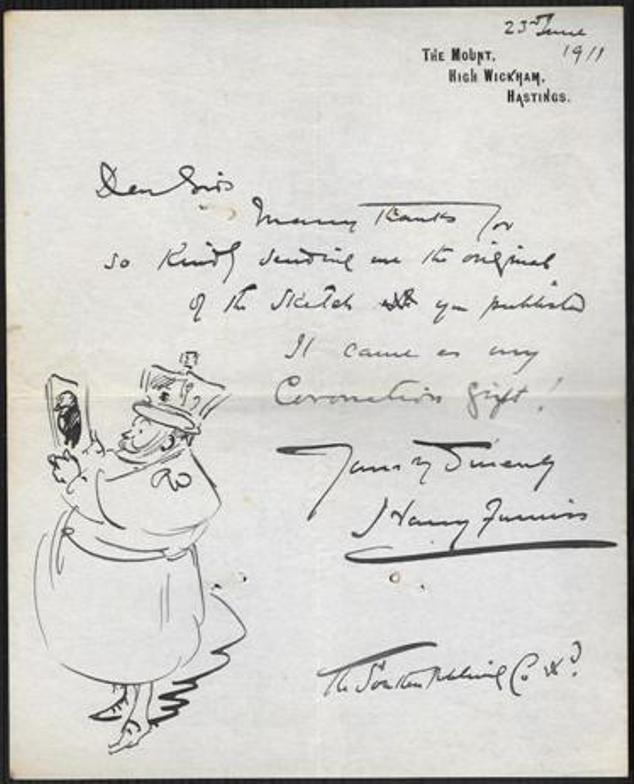 23rd June
1911
The Mount,
High Wickham,
Hastings.
Dear Sirs
Many thanks for
so kindly sending me the original
of the sketch you published
It came as my
Coronation gift!
Yours very sincerely
Harry Furniss
The Southern Publishing Co Ltd